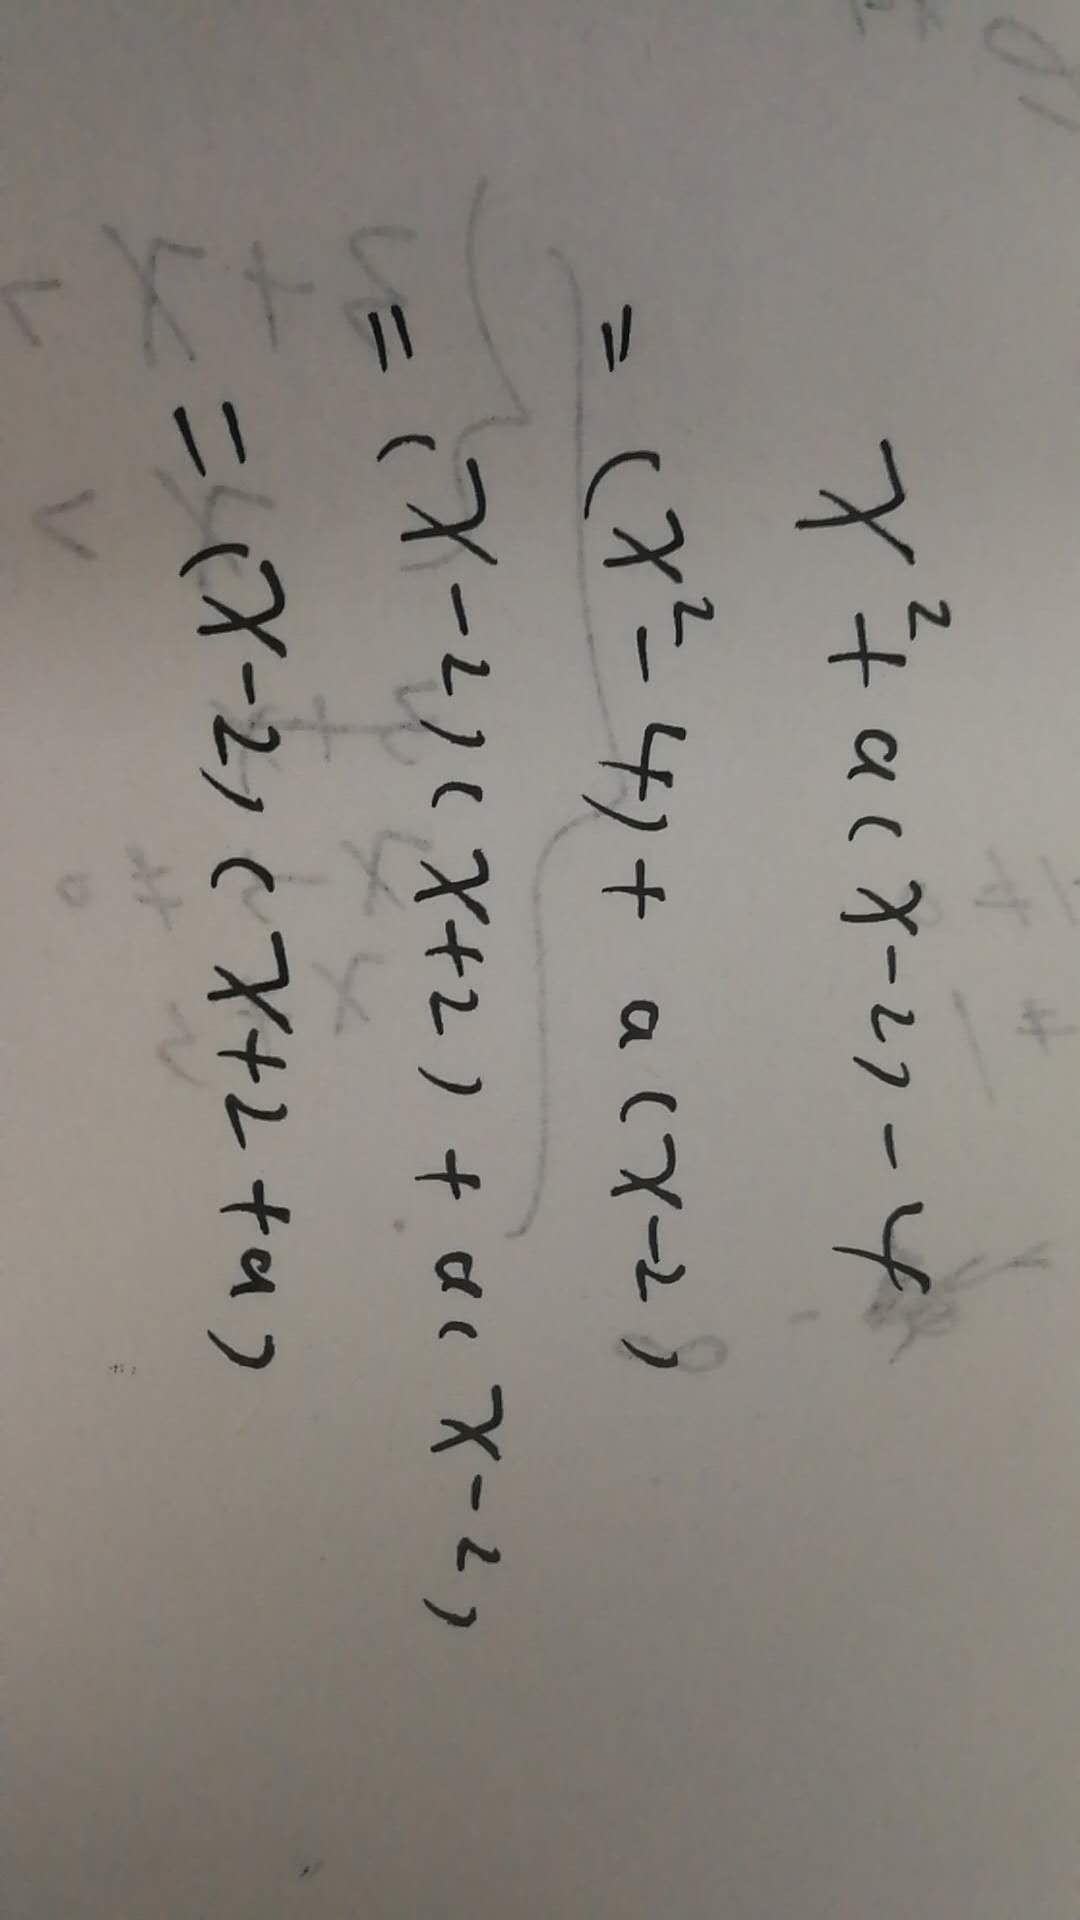 x²+a(x-2)-4
=(x²-4)+a(x-2)
=(x-2)(x+2)+a(x-2)
=(x-2)(x+2+a)